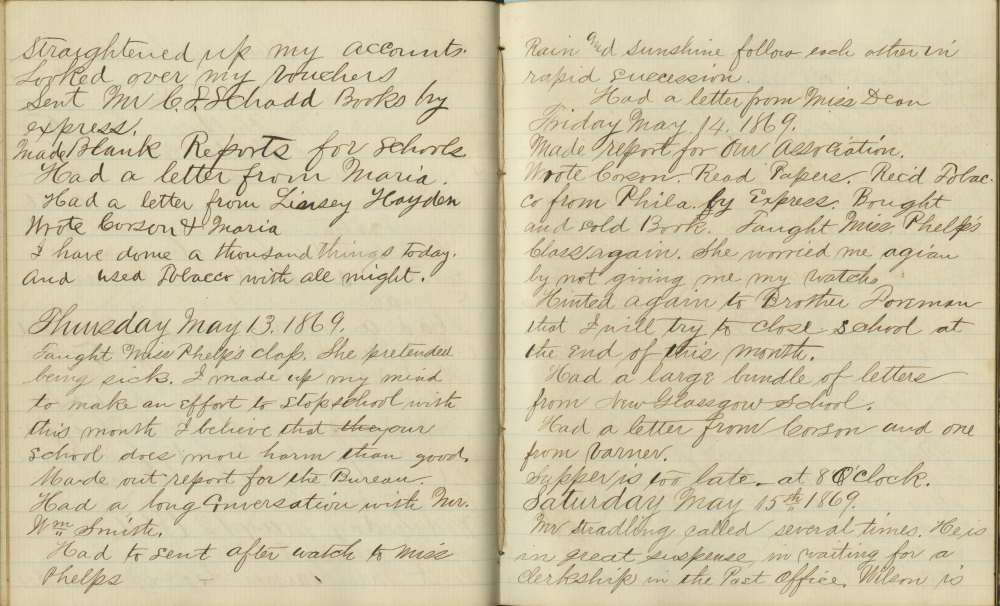 Straightened up my accounts.
Looked over my vouchers
Sent Mr C. S. Schadd Books by
express.
Made Blank Reports for Schools
Had a letter from Maria.
Had a letter from Linsey Hayden
Wrote Corson & Maria
I have done a thousand things today.
And used Tobacco with all might.
Thursday May 13. 1869.
Taught Miss Phelps class. She pretended
being sick. I made up my mind
to make an effort to stop school with
this month I believe that they our
school does more harm than good.
Made out report for the Bureau.
Had a long Conversation with Mr.
Wm Smith.
Had to sent after watch to Miss
Phelps
Rain and sunshine follow each other in
rapid succession.
Had a letter from Miss Dean
Friday May 14. 1869.
Made report for Our Association.
Wrote Corson. Read Papers. Rec'd Tobac-
co from Phila. by Express. Bought
and sold Book. Taught Miss. Phelps
Class again. She worried me agian
by not giving me my watch.
Hinted again to Brother Foreman
that I will try to close school at
the end of this month.
Had a large bundle of letters
from New Glassgow School.
Had a letter from Corson and one
from Varner.
Supper is too late. at 8 O'Clock.
Saturday May 15th 1869.
Mr Stradling called several times. He is
in great suspense, in waiting for a
Clerkship in the Post Office. Wilson is